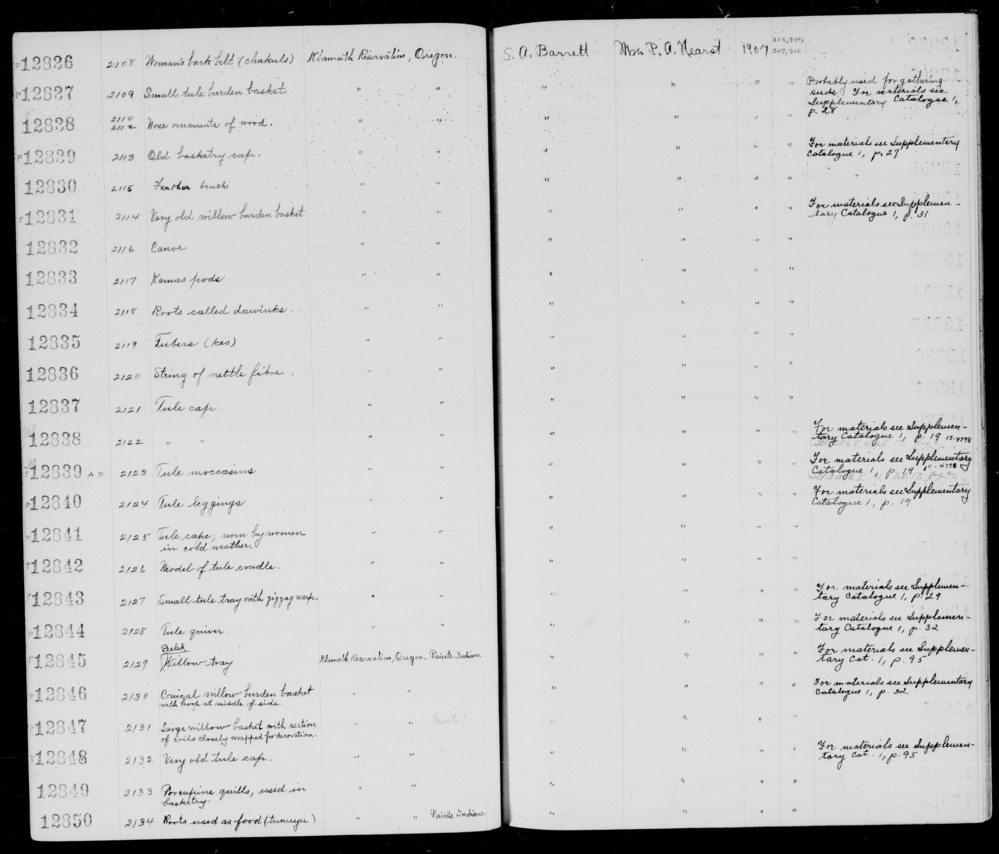 12826 2108 Woman's bark belt (chakuls) Klamath Reservation, Oregon. S. A. Barrett Mrs. P. A. Hearst 1907
12827 2109 Small tule burden basket " " " " " " Probably used for gathering
seeds. For materials see
Supplementary Catalogue 1,
p. 28
12828 2110
2112 Nose ornaments of wood. " " " " " "
12829 2113 Old basketry cap. " " " " " " For materials see Supplementary
Catalogue 1, p. 27
12830 2115 Feather brush " " " " " "
12831 2114 Very old willow burden basket " " " " " " For materials see Supplemen-
tary Catalogue 1, p. 31
12832 2116 Canoe " " " " " "
12833 2117 Kamas pods " " " " " "
12834 2118 Roots called dawinks. " " " " " "
12835 2119 Tubers (kes) " " " " " "
12836 2120 String of nettle fibre. " " " " " "
12837 2121 Tule cap. " " " " " "
12838 2122 " " " " " " " " For materials see Supplemen-
tary Catalogue 1, p. 19 15-4798
12839 A B 2123 Tule moccasins " " " " " " For materials see Supplementary
Catalogue 1, p. 19 15-4798
12840 2124 Tule leggings " " " " " " For materials see Supplementary
Catalogue 1, p. 19
12841 2125 Tule cape; worn by women
in cold weather. " " " " " "
12842 2126 Model of tule cradle. " " " " " "
12843 2127 Small tule tray with zigzag warp. " " " " " " For materials see Supplemen-
tary Catalogue 1, p. 29
12844 2128 Tule quiver. " " " " " " For materials see Supplemen-
tary Catalogue 1, p. 32
Peeled
12845 2129 Willow tray Klamath Reservation, Oregon. Paiute Indians " " " " For materials see Supplemen-
tary Cat. 1, p. 95
12846 2130 Conical willow burden basket
with hoop at middle of side. " " " " " " For materials see Supplementary
Catalogue 1, p. 32
12847 2131 Large willow basket with section
of coils closely wrapped for decoration. " " " " " "
12848 2132 Very old tule cap. " " " " " " For materials see Supplemen-
tary Cat. 1, p. 95
12849 2133 Porcupine quills, used in
basketry. " " " " " "
12850 2134 Roots used as food " " Paiute Indians " " " "